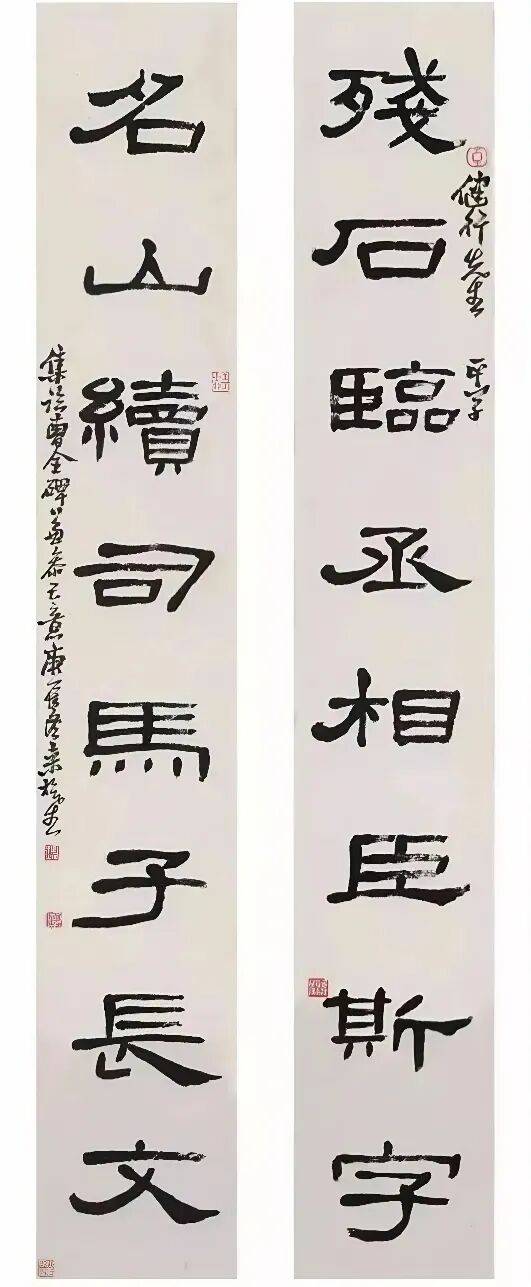 殘石臨丞相臣斯字
健行先生 正字
名山續司馬子長文
集漢曹全碑